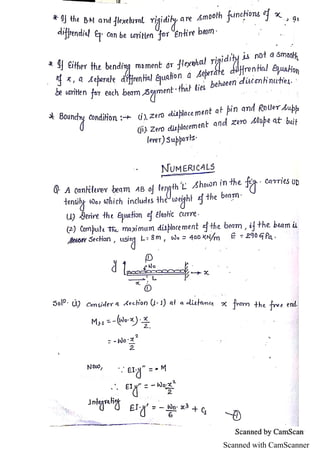 * If the BM and flexural rigidity are smooth functions of x, 
diffrendial Eq can be written for Entire beam.
* If Either the bending moment or flexural rigidity is not a smooth
of x, a seperate differential Equation a seperate diffrential Equation
be written for each beam segment that lies between discontinuities.
* Boundry condition :→ (i), Zero displacement at pin and Roller Supp
(ii) Zero displacement and zero slope at buit
lever) supports.
NUMERICALS
Q A cantilever beam AB of length 'L' shown in the fig. carries UD
tensity Wo, which includes the weight of the beam.
(1) Derive the Equation of Elastic curve.
(2) Compute the maximum displacement of the beam, if the beam is
section, using L = 3m, Wo = 400 KN/m E = 200 GPa.
y
①
Wo
x
→ x
①
Solⁿ. (i) Consider a section (1-1) at a distance x from the free end.
M₁₋₁ = -(Wo·x)·x/2
= -Wo·x²/2
Now, ∵ EI·y″ = M
∴ EI·y″ = -Wo·x²/2
Integrating EI·y′ = -Wo/6 · x³ + C₁ — ①
Scanned by CamScan
Scanned with CamScanner